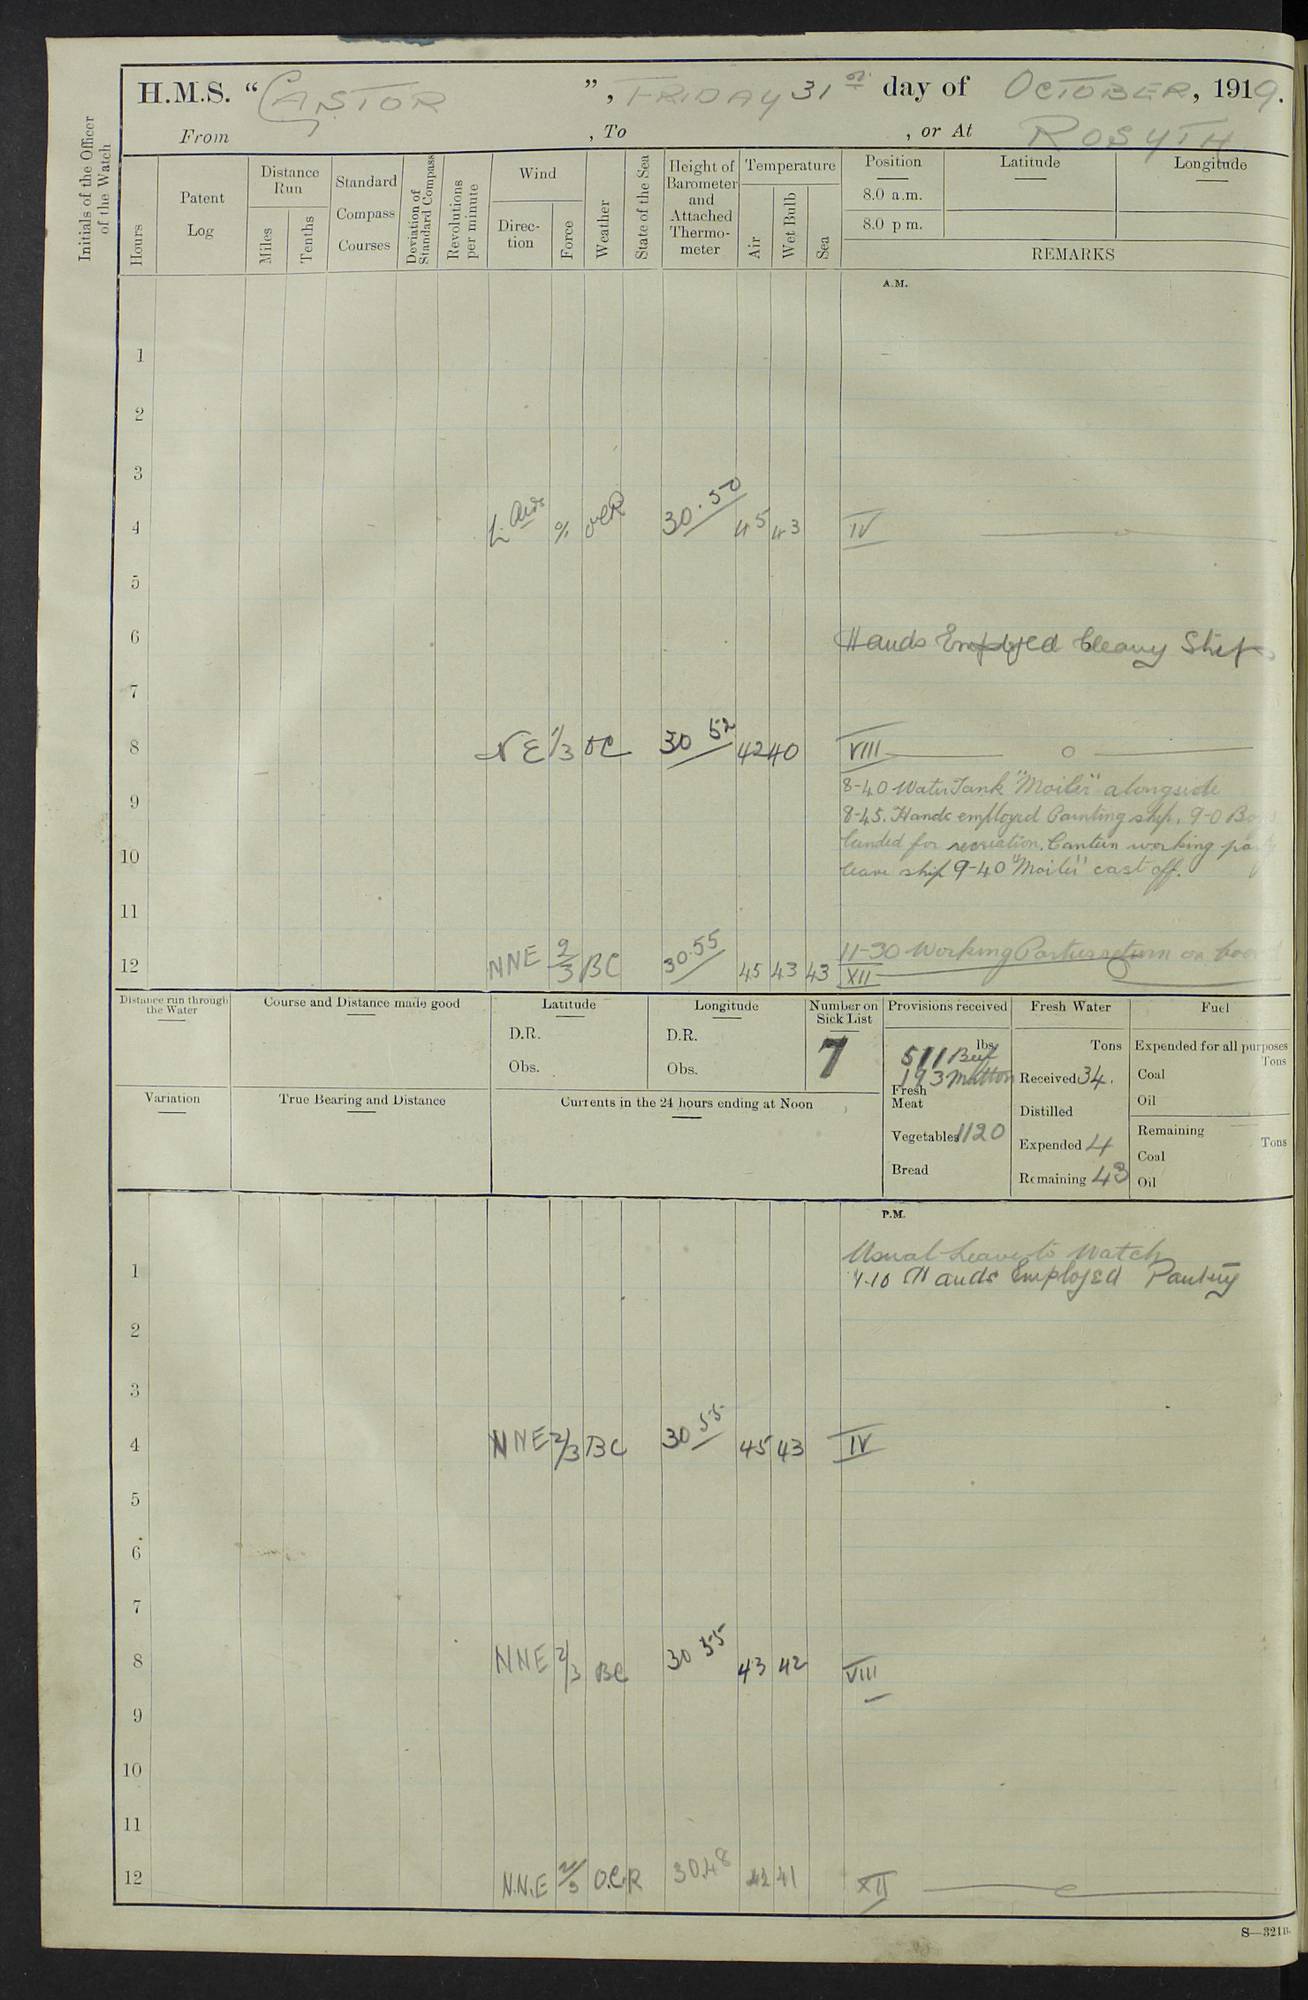 H.M.S. “CASTOR”, FRIDAY 31st day of OCTOBER, 1919.
From , To , or At ROSYTH
Initials of the Officer of the Watch
Hours
Patent Log
Distance Run
Miles
Tenths
Standard Compass Courses
Deviation of Standard Compass
Revolutions per minute
Wind
Direction
Force
Weather
State of the Sea
Height of Barometer and Attached Thermometer
Temperature
Air
Wet Bulb
Sea
Position
8.0 a.m.
8.0 p m.
Latitude
Longitude
REMARKS
A.M.
1
2
3
4 30.50 45 43 IV
5
6 Hands Employed Cleang Ship
7
8 NE 1/3 OC 30 52 42 40 VIII
8-40 Water Tank "Moiler" alongside
9 8-45. Hands employed Painting ship. 9-0
landed for recreation. Canteen working
10 leave ship 9-40 "Moiler" cast off.
11
11-30 Working Parties return on
12 NNE 2/3 BC 30.55 45 43 43 XII
Distance run through the Water
Course and Distance made good
Latitude
D.R.
Obs.
Longitude
D.R.
Obs.
Number on Sick List
7
Provisions received
lbs
511 Beef
193 Mutton
Fresh Meat
Vegetables 1120
Bread
Fresh Water
Tons
Received 34.
Distilled
Expended 4
Remaining 43
Fuel
Expended for all purposes
Tons
Coal
Oil
Remaining
Tons
Coal
Oil
Variation
True Bearing and Distance
Currents in the 24 hours ending at Noon
P.M.
Usual Leave to Watch
1 1-10 Hands Employed
2
3
4 NNE 2/3 BC 30 55 45 43 IV
5
6
7
8 NNE 2/3 BC 30 55 43 42 VIII
9
10
11
12 N.N.E 2/3 O.C.R 30.48 42 41 XII
S—321B.